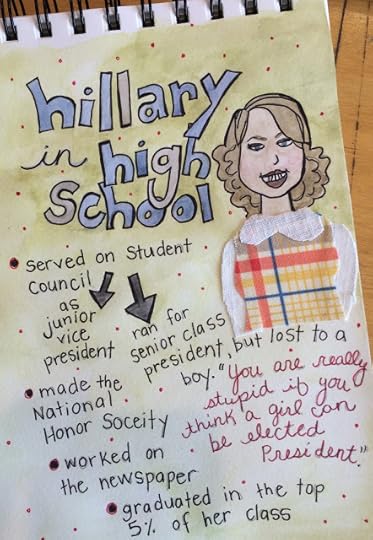 hillary
in high
School
served on Student
Council
as
junior
vice
president
ran for
senior class
president, but lost to a
boy. "You are really
stupid if you
think a girl can
be elected
President."
made the
National
Honor Soceity
worked on
the newspaper
graduated in the top
5% of her class